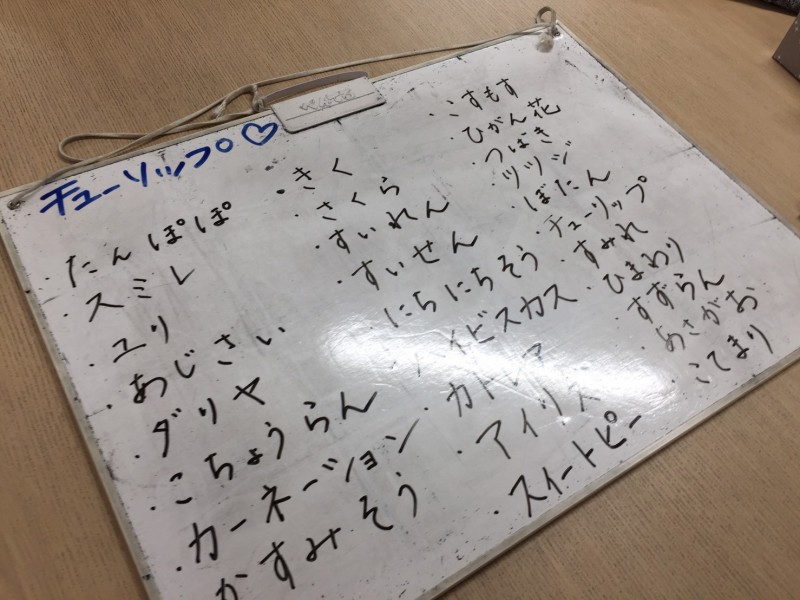 チューリップ♡
・たんぽぽ
・スミレ
・ユリ
・あじさい
・ダリヤ
・こちょうらん
・カーネーション
・かすみそう
・きく
・さくら
・すいれん
・すいせん
・にちにちそう
・ハイビスカス
・カトレア
・アイリス
・スイートピー
・こすもす
・ひがん花
・つばき
・ツツジ
・ぼたん
・チューリップ
・すみれ
・ひまわり
・すずらん
・あさがお
・こてまり